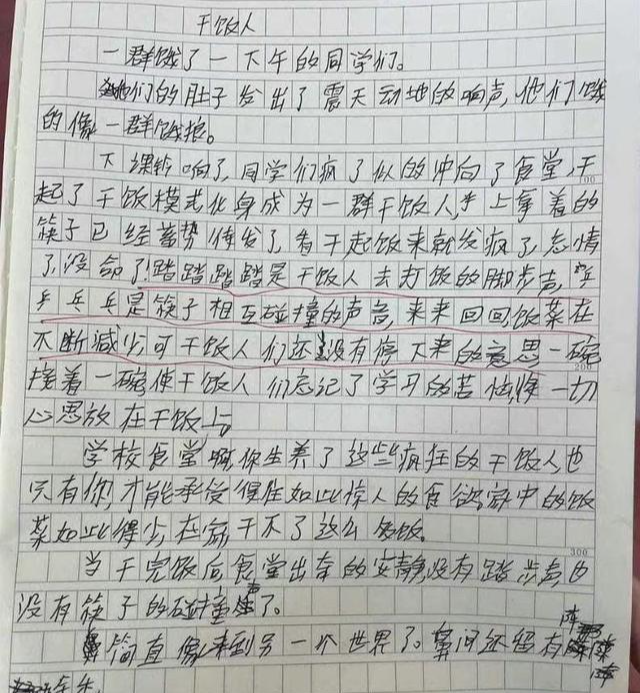 干饭人
一群饿了一下午的同学们。
他们的肚子发出了震天动地的响声,他们饿
的像一群饿狼。
下课铃响了,同学们疯了似的冲向了食堂,开
起了干饭模式化身成为一群干饭人,手上拿着的
筷子已经蓄势待发了,看干起饭来就发疯了,忘情
了,没命了!踏踏踏踏是干饭人去打饭的脚步声,乒
乒乓乓是筷子相互碰撞的声音,来来回回饭菜在
不断减少,可干饭人们还没有停下来的意思一碗
接着一碗使干饭人们忘记了学习的苦恼,将一切
心思放在干饭上。
学校食堂啊你生养了这些疯狂的干饭人也
只有你,才能承受得住如此惊人的食欲家中的饭
菜如此得少,在家干不了这么多饭。
300
当干完饭后食堂出奇的安静,没有踏步声,也
没有筷子的碰撞声了。
简直像来到另一个世界了。鼻间还留有阵